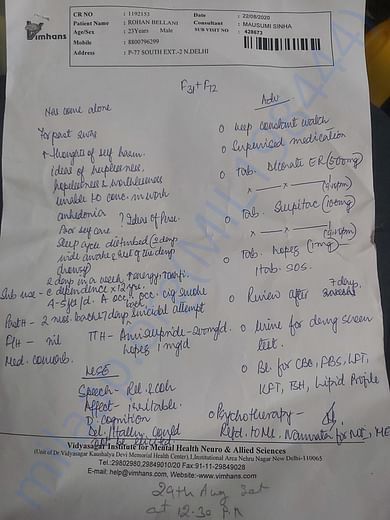 vimhans
CR NO : 1192153
Patient Name : ROHAN BELLANI
Age/Sex : 23Years Male
Mobile : 8800796299
Address : P-77 SOUTH EXT.-2 N.DELHI
Date : 22/08/2020
Consultant : MAUSUMI SINHA
SUB VISIT NO : 428673
F31 + F12
Has come alone
For past 2 wks
↑ thoughts of self harm.
ideas of helplessness,
hopelessness & worthlessness
unable to conc. in work
anhedonia ? Ideas of
Poor self care
Sleep cycle disturbed (2 days
wide awake & rest of the days
drowsy)
2 days in a week, ↑ energy,
Sub use - dependence x 12 yrs.
4-5 jt/d. A occ, occ. cig smoke
PastH - 2 mos. back suicidal attempt
FH - nil TTH - Amisulpride - 200mg/d.
Med. comorb. lopez 1mg/d
MSE
Speech - Rel & Coh
Affect - irritable.
D. Cognition
could
not be elicited
Adv
o keep constant watch
o Supervised medication
o Tab. Dicorate ER (500mg)
x — x —
o Tab. Sulpitac (100mg)
x — x —
o Tab. Lopez (1mg)
1tab. SOS.
o Review after 7 days
o Urine for drug screen
test.
o Bl. for CBC, FBS, LFT,
KFT, TSH, Lipid Profile
o Psychotherapy -
Refd. to Ms. Namrata for
Vidyasagar Institute for Mental Health Neuro & Allied Sciences
(Unit of Dr Vidyasagar Kaushalya Devi Memorial Health Center), 1,Institutional Area Nehru Nagar New Delhi-110065
Tel.:29802980,29849010/20 Fax:91-11-29849028
E-mail: help@vimhans.com, Website:-www.vimhans.com
29th Aug Sat
at 12:30 PM